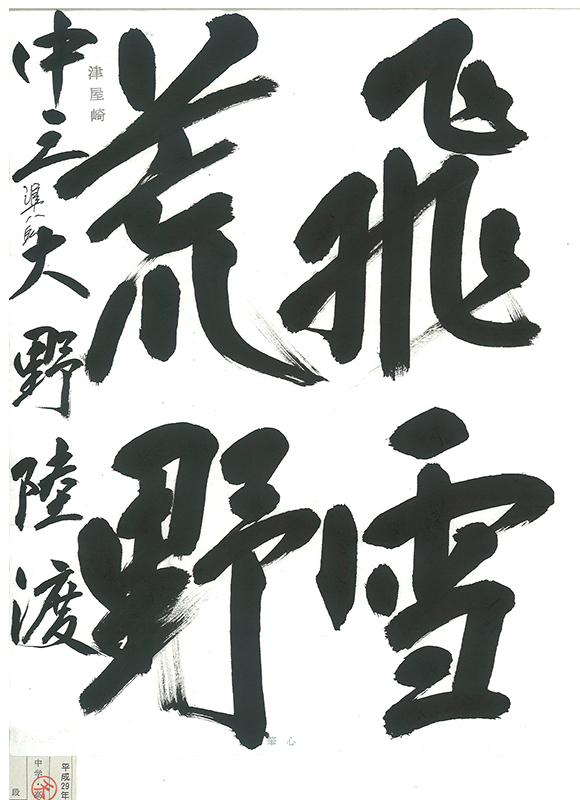 飛雪
荒野
津屋崎
中三 準八段 大野陸渡
心華
平成29年
中学・高
段